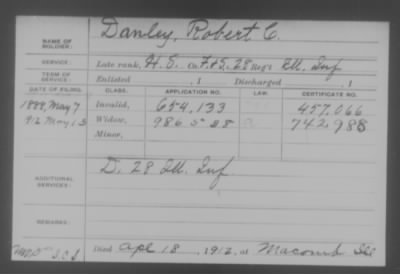 Danley, Robert C.
NAME OF SOLDIER:
SERVICE: Late rank, H.S. Co. F.&S. 28 Reg't Ill. Inf
TERM OF SERVICE: Enlisted , 1 Discharged , 1
DATE OF FILING. CLASS. APPLICATION NO. LAW. CERTIFICATE NO.
1888, May 7 Invalid, 654,133 457,066
912 May 13 Widow, 986 528 742,988
Minor,
ADDITIONAL SERVICES: D. 28 Ill. Inf
REMARKS:
Died Apl 18, 1912, at Macomb Ill